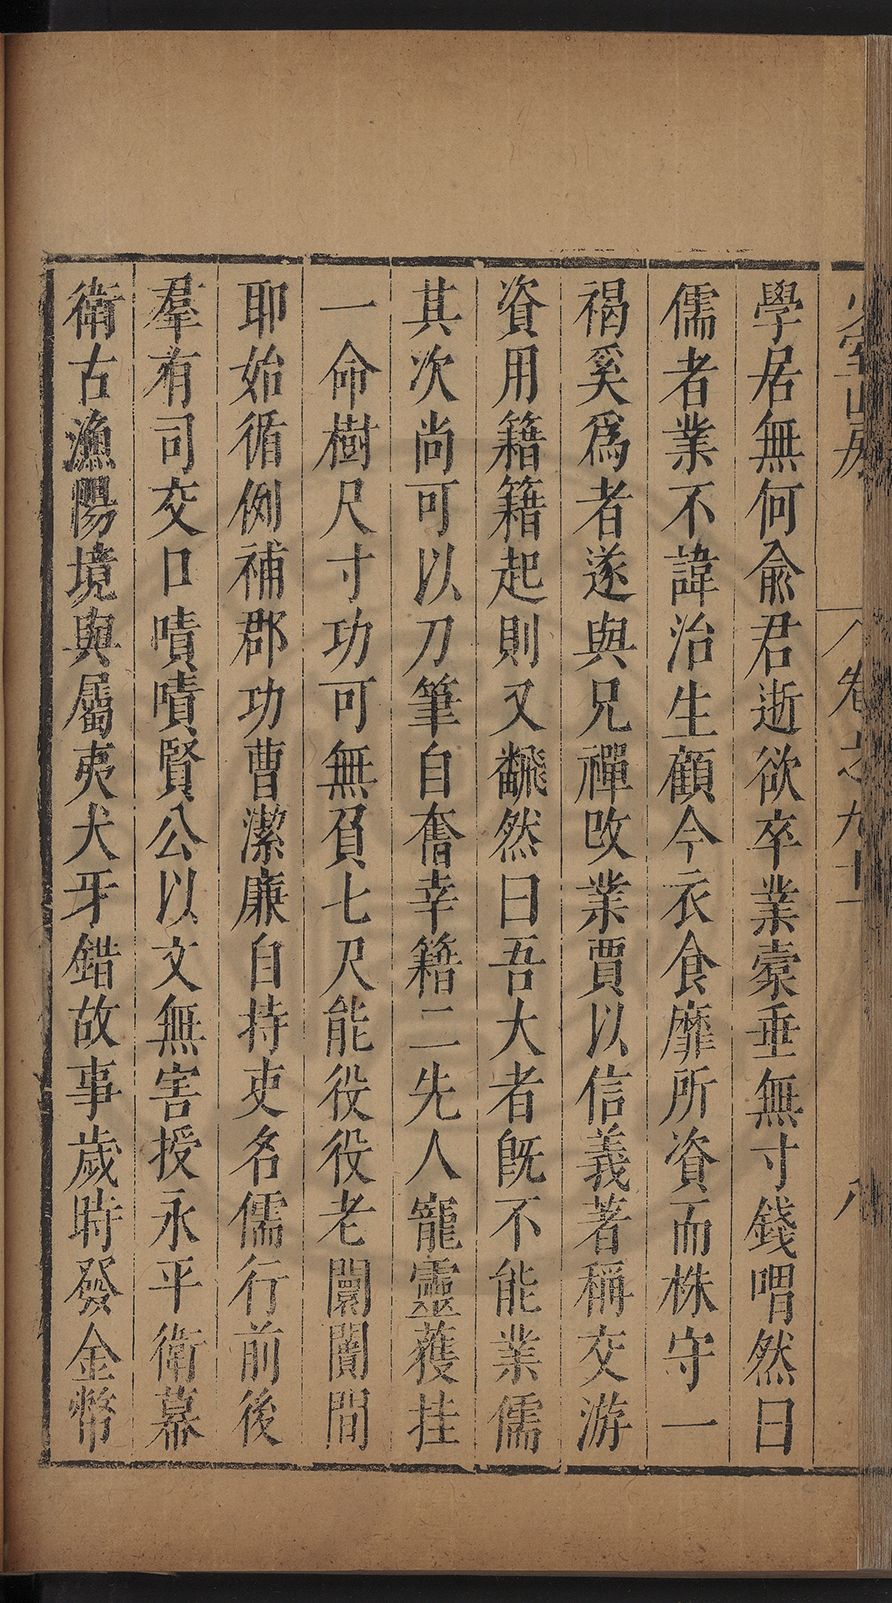 少室山房
卷之九十
八
學居無何兪君逝欲卒業橐垂無寸錢喟然曰
儒者業不諱治生顧今衣食靡所資而株守一
褐奚爲者遂與兄禪改業賈以信義著稱交游
資用籍籍起則又飜然曰吾大者旣不能業儒
其次尚可以刀筆自奮幸籍二先人寵靈獲挂
一命樹尺寸功可無負七尺能役役老闤闠間
耶始循例補郡功曹潔廉自持吏名儒行前後
羣有司交口嘖嘖賢公以文無害授永平衛幕
衛古漁陽境與屬夷犬牙錯故事歲時發金幣